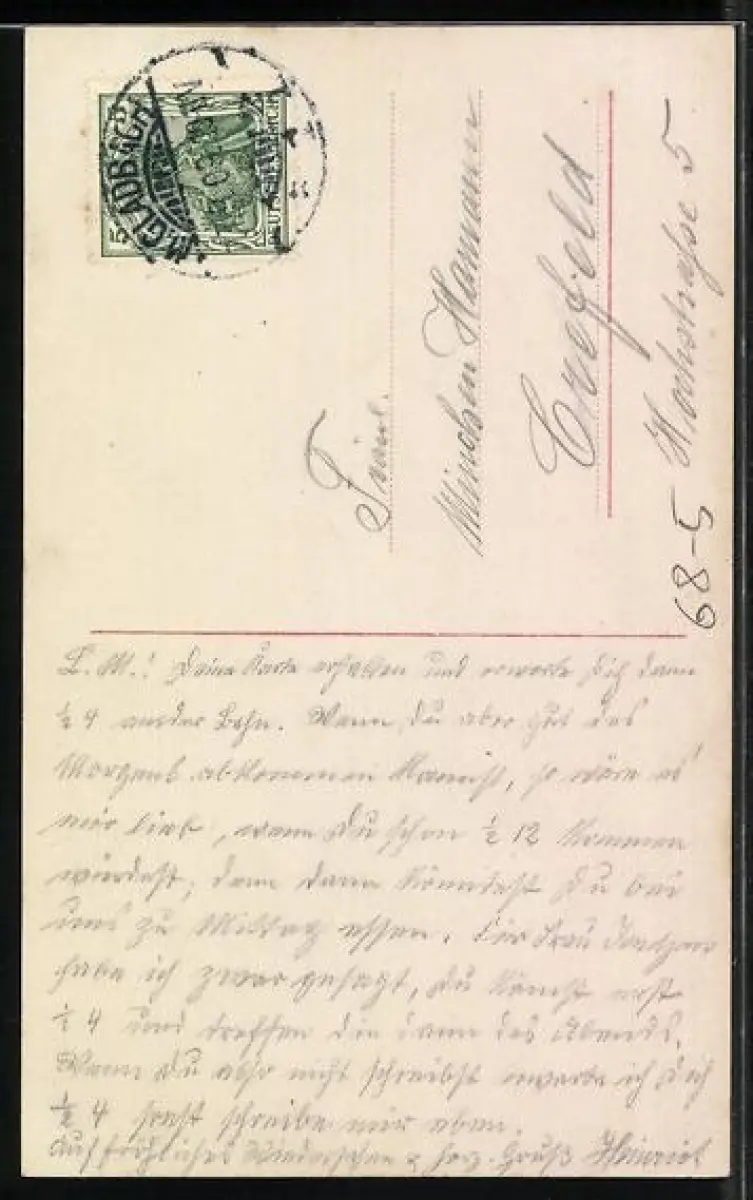 M.GLADBACH
5
Fräul.
Minchen Hamann
Crefeld
Hochstraße 5
68-5
L. M.! Deine Karte erhalten und erwarte Dich dann
½ 4 an der Bahn. Wenn Du aber gut des
Morgens abkommen kannst, so wäre es
mir lieb, wenn Du schon ½ 12 kommen
würdest; denn dann könntest Du bei
uns zu Mittag essen. Für Frau
habe ich zwar gesagt, Du kämst erst
½ 4 und treffen die dann des Abends.
Wenn Du also nicht schreibst erwarte ich Dich
½ 4 sonst schreibe mir eben.
Auf fröhliches Wiedersehen u. herz. Gruß Heinrich